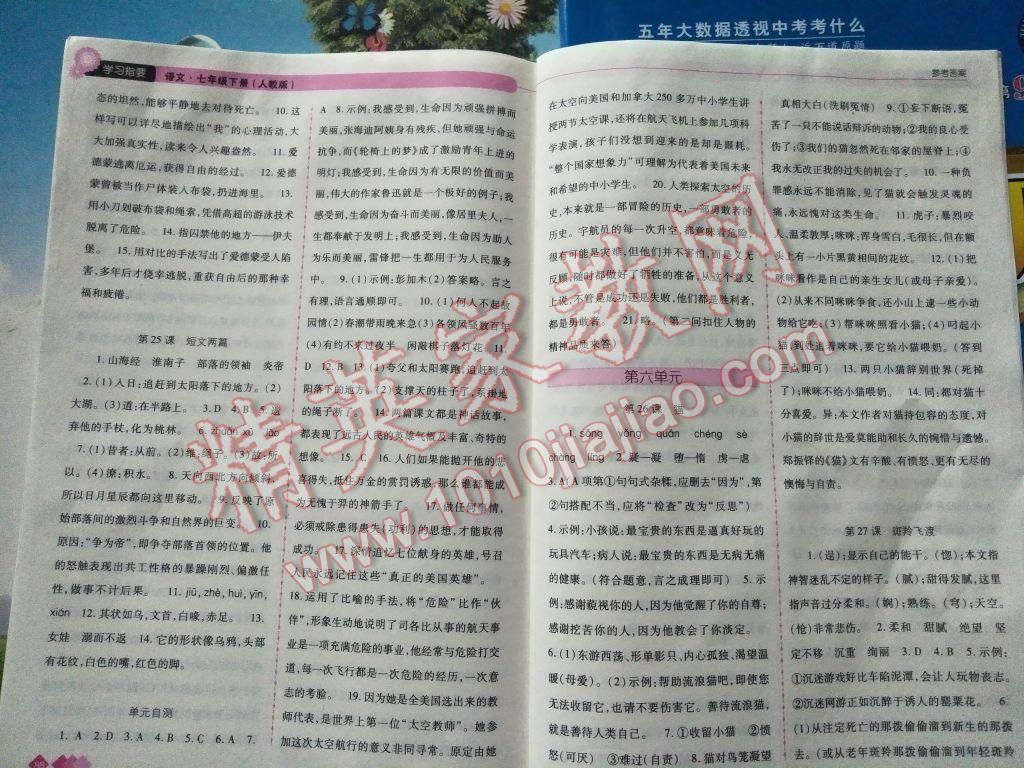 五年大数据透视中考考什么
学习指要
语文·七年级下册(人教版)
参考答案
态的坦然,能够平静地去对待死亡。 10. 这
样写可以详尽地描绘出“我”的心理活动,大
大加强真实性,读来令人兴趣盎然。 11. 爱
德蒙逃离厄运,获得自由的经过。 12. 爱德
蒙曾被当作尸体装人布袋,扔进海里。 13.
用小刀划破布袋和绳索,凭借高超的游泳技术
脱离了危险。 14. 指囚禁他的地方——伊夫
堡。 15. 用对比的手法写出了爱德蒙受人陷
害,多年后才侥幸逃脱,重获自由后的那种幸
福和疲倦。
第25课 短文两篇
1. 山海经 淮南子 部落的领袖 炎帝
2.(1)人日;追赶到太阳落下的地方。(2)
大湖。(3)道;在半路上。 3. D 4. B 5. 遗
弃他的手杖,化为桃林。 6. zhuān xū lǎo
7.(1)昔者;从前。(2)维;绳子。(3)故;所
以。(4)潦;积水。 8. 天向西北方向倾斜,
所以日月星辰都向这里移动。 9. 反映了原
始部落间的激烈斗争和自然界的巨变。 10.
原因:“争为帝”,即争夺部落首领的位置。他
的怒触表现出共工性格的暴躁刚烈、偏激任
性,做事不计后果。 11. jiū, zhè, huì, yīn,
xián 12. 其状如乌,文首,白喙,赤足。 13.
女娃 溺而不返 14. 它的形状像乌鸦,头部
有花纹,白色的嘴,红色的脚。
单元自测
1. A 2. D 3. A 4. C 5. A 6. A 7.
A 8. 示例:我感受到,生命因为顽强拼搏而
美丽,张海迪阿姨身有残疾,但她顽强与命运
抗争,而《轮椅上的梦》成了激励青年上进的
明灯;我感受到,生命因为有无限的价值而美
丽,伟大的作家鲁迅就是一个极好的例子;我
感受到,生命因为奋斗而美丽,像居里夫人,一
生都奉献于发明上;我感受到,生命因为助人
为乐而美丽,雷锋把一生都用于为人民服务
中。 9.(1)示例:彭加木(2)答案略。言之
有理,语言通顺即可。 10.(1)何人不起故
园情(2)春潮带雨晚来急(3)各领风骚数百年
(4)有约不来过夜半 闲敲棋子落灯花 11.
D 12. B 13.(1)夸父和太阳赛跑,追赶到太
阳落下的地方。(2)支撑天的柱子折了,系挂地
的绳子断了。 14. 两篇课文都是神话故事,
都表现了远古人民的英雄气慨及丰富、奇特的
想像。 15. C 16. 人们如果能抛开他的悲
喜得失,抵住万金的赏罚诱惑,那么谁都能成
为无愧于羿的神箭手了。 17. 做任何事情,
必须戒除患得患失(功利)的思想,才能取得
成功。 17. 深情追忆七位献身的英雄,号召
人民永远记住这些“真正的美国英雄”。
18. 运用了比喻的手法,将“危险”比作“伙
伴”,形象生动地说明了司各比从事的航天事
业是一项充满危险的事业,他经常与危险打交
道,每一次飞行都是一次危险的经历,一次意
志的考验。 19. 因为她是全美国选出来的教
师代表,是世界上第一位“太空教师”。她参
加这次太空航行的意义非同寻常。原定由她
在太空向美国和加拿大250多万中小学生讲
授两节太空课,还将在航天飞机上参加几项科
学表演,孩子们没想到迎来的是却是噩耗。
“整个国家想象力”可理解为代表着美国未来
和希望的中小学生。 20. 人类探索太空的历
史,本来就是一部冒险的历史,一部勇敢者的
历史。宇航员的每一次升空,都意味着危险,
很有可能是灾难,但他们并不害怕,而是义无
反顾,随时都做好了牺牲的准备,从这个意义
上说,不管是成功还是失败,他们都是胜利者,
都是勇敢者。 21. 略。(第二问扣住人物的
精神品质来答)
第六单元
第26课 猫
1. sǒng yōng quán chéng sè
chàng líng 2. 凝—凝 堕—惰 虏—虐
3. A(A项第①句句式杂糅,应删去“因为”,第
②句搭配不当,应将“检查”改为“反思”)
4. 示例:小孩说:最宝贵的东西是逼真好玩的
玩具汽车;病人说:最宝贵的东西是无病无痛
的健康。(符合题意,言之成理即可) 5. 示
例:感谢藐视你的人,因为他觉醒了你的自尊;
感谢挖苦你的人,因为他教会了你淡定。
6.(1)东游西荡、形单影只、内心孤独、渴望温
暖(母爱)。(2)示例:帮助流浪猫吧,即使您
无法收留它,也请不要伤害它。善待流浪猫,
就是善待人类自己。 7. ①收留小猫 ②愤
怒(可厌) ③难过(自责) 8. 猫对鸟笼凝望
真相大白(洗刷冤情) 9. ①妄下断语,冤
苦了一只不能说话辩诉的动物;②我的良心受
伤了;③我们的猫忽然死在邻家的屋脊上;④
我永无改正我的过失的机会了。 10. 一种负
罪感永远不能消除,见了猫就会触发灵魂的
痛,永远愧对这类生命。 11. 虎子:暴烈咬
人、温柔敦厚;咪咪:浑身雪白,毛很长,但在额
头上有一小片黑黄相间的花纹。 12.(1)把
咪咪看作是自己的亲生女儿(或母子亲爱)。
(2)从来不同咪咪争食,还小山上逮一些小动
物给它吃;(3)帮咪咪照看小猫;(4)叼起小
猫,到处追着咪咪,要它给小猫喂奶。(答到
三点即可) 13. 两只小猫辞别世界(死掉
了);咪咪不给小猫喂奶。 14. 同:都对猫十
分喜爱。异:本文作者对猫持包容的态度,对
小猫的辞世是爱莫能助和长久的惋惜与遗憾。
郑振铎的《猫》文有辛酸、有愤怒、更有无尽的
懊悔与自责。
第27课 斑羚飞渡
1.(逞):显示自己的能干。(惚):本文指
神智迷乱不定的样子。(腻):甜得发腻,这里
指声音过分柔和。(娴):熟练。(穹):天空。
(怆)非常悲伤。 2. 柔和 甜腻 绝望 坚
定不移 沉重 绚丽 3. D 4. B 5. 示例:
①沉迷游戏好比车陷泥潭,会让人玩物丧志。
②沉迷网游正如沉醉于诱人的罂粟花。 6.
(1)从注定死亡的那拨偷偷溜到新生的那拨
去。(或从老年斑羚那拨偷偷溜到年轻斑羚
精英家教网
www.1010jiajiao.com